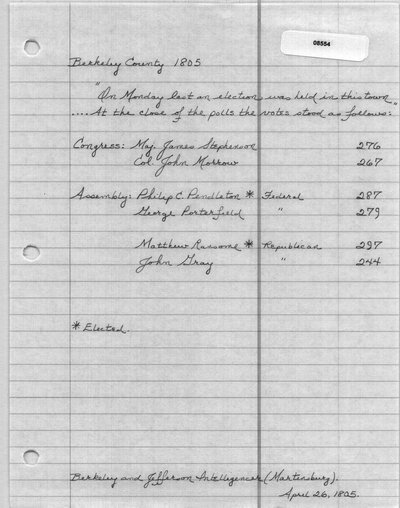 08554
Berkeley County 1805
"On Monday last an election was held in this town
.... At the close of the polls the votes stood as follows:"
Congress: Maj. James Stephenson 276
Col. John Morrow 267
Assembly: Philip C. Pendleton * Federal 287
George Porterfield " 279
Matthew Ransome * Republican 297
John Gray " 244
* Elected.
Berkeley and Jefferson Intelligencer (Martinsburg).
April 26, 1805.